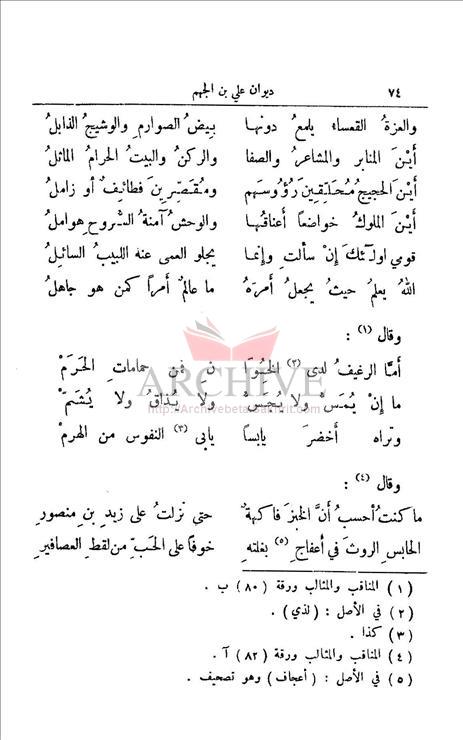 ٧٤ ديوان علي بن الجهم
والعزةُ القعساء يلمعُ دونها بِيضُ الصوارمِ والوشيجُ الذابلُ
أَيْنَ المنابر والمشاعرُ والصفا والركنُ والبيتُ الحرامُ الماثلُ
أَيْنَ الحجيجُ مُحَلِّقِينَ رُؤُوسَهم ومُقَصِّرِينَ فطائِفٌ أو زاملُ
أَيْنَ الملوكُ خواضعاً أعناقُها والوحشُ آمنةُ السُّروحِ هواملُ
قومي اولَـئكَ إِنْ سألتِ وإِنما يجلو العمى عنه اللبيبُ السائلُ
اللهُ يعلمُ حيثُ يجعلُ أمرَهُ ما عالمٌ أمراً كمن هو جاهلُ
وقال (١) :
أمَّا الرغيفُ لدى (٢) الخُـوَا نِ فمن حمامات الحَرَمْ
ما إِنْ يُمَسُّ ولا يُجَسُّ ولا يُذاقُ ولا يُشَمّْ
وتراه أخضرَ يابساً يابى (٣) النفوس من الهرمْ
وقال (٤) :
ما كنتُ أحسبُ أنَّ الخبزَ فاكهةٌ حتى نزلتُ على زيدِ بنِ منصورِ
الحابس الروثَ في أعفاجِ (٥) بغلتهِ خوفاً على الحَبِّ من لقطِ العصافيرِ
(١) المناقب والمثالب ورقة (٨٠) ب .
(٢) في الأصل : (لذي) .
(٣) كذا .
(٤) المناقب والمثالب ورقة (٨٢) آ .
(٥) في الأصل : (أعجاف) وهو تصحيف .
ARCHIVE